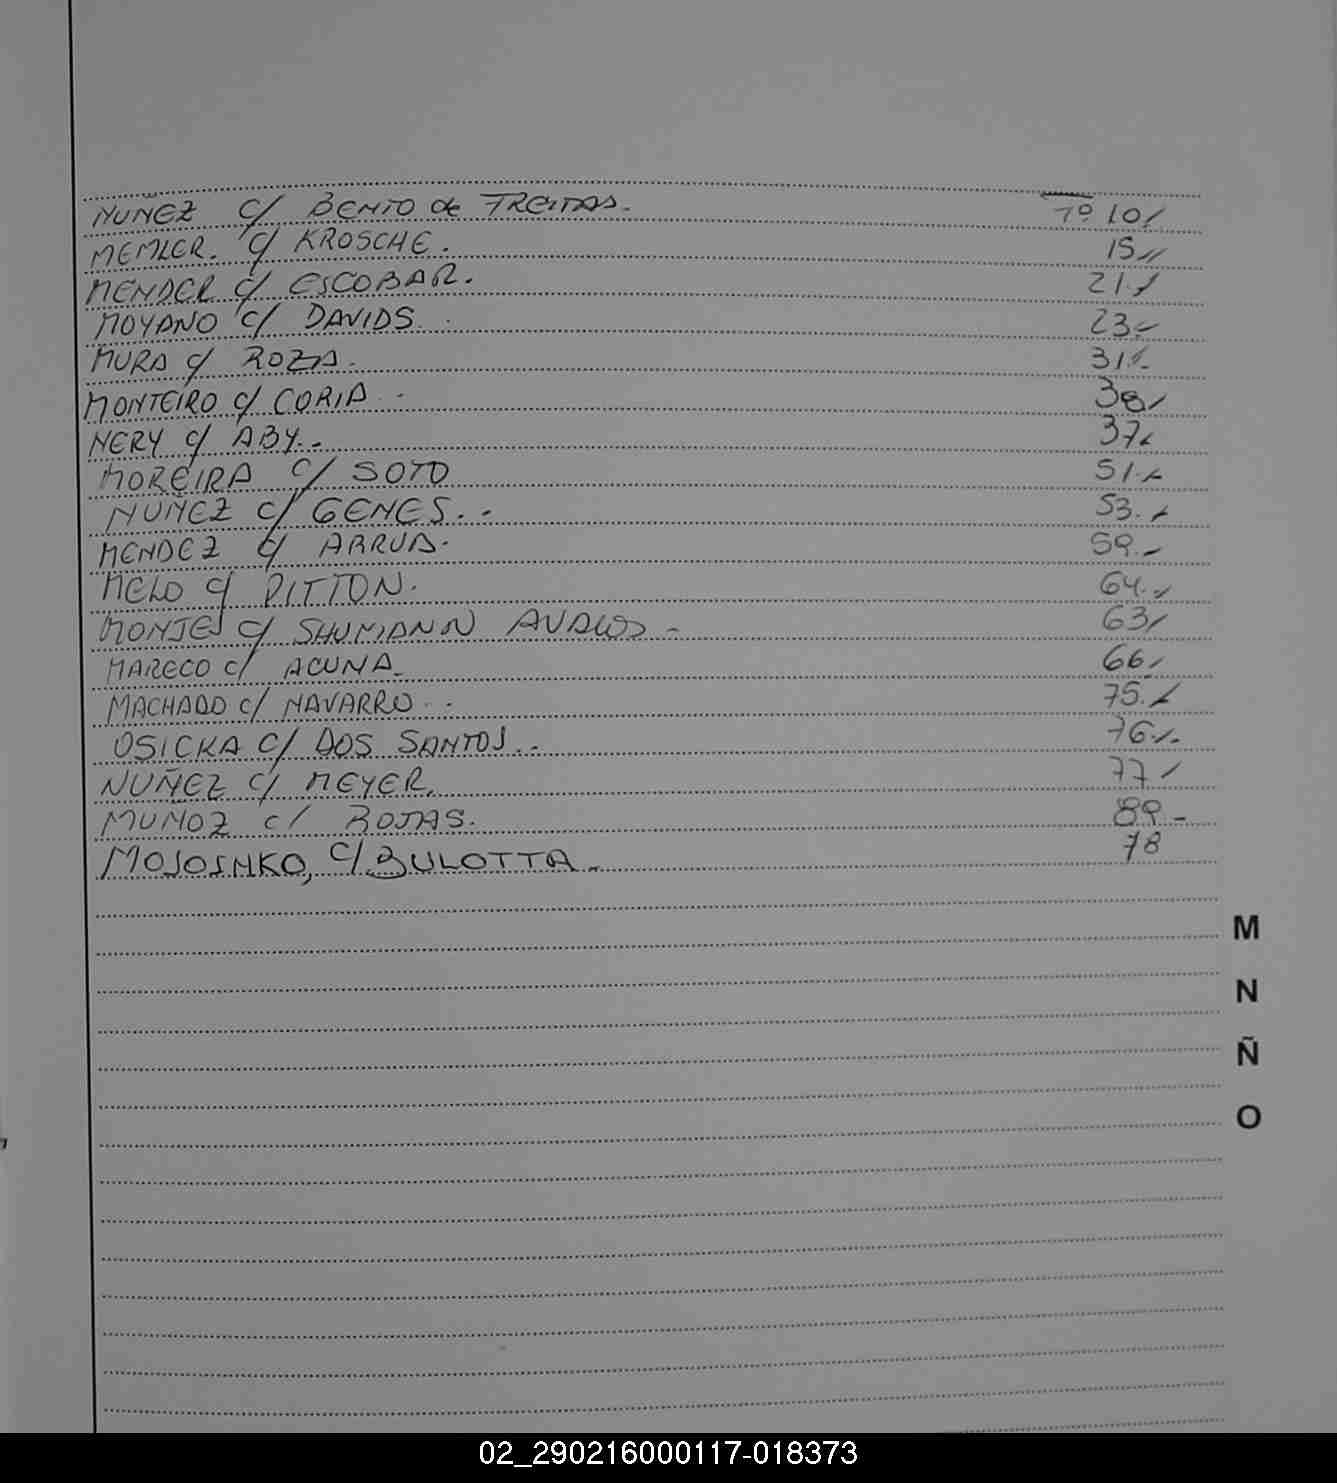 NUÑEZ c/ BENTO de FREITAS. Tº 10
MEMLER. c/ KROSCHE. 15
MENDER c/ ESCOBAR. 21
MOYANO c/ DAVIDS. 23
MURA c/ ROZA. 31
MONTEIRO c/ CORIA 38
NERY c/ ABY. 37
MOREIRA c/ SOTO 51
NUÑEZ c/ GENES. 53
MENDEZ c/ ARRUA. 59
MELO c/ PITTON. 64
MONJE c/ SHUMANN AVALOS 63
MARECO c/ ACUNA 66
MACHADO c/ NAVARRO 75
OSICKA c/ DOS SANTOS 76
NUÑEZ c/ MEYER. 77
MUÑOZ c/ ROJAS. 89
MOJOSNKO, c/ BULOTTA 78
M
N
Ñ
O
02_290216000117-018373